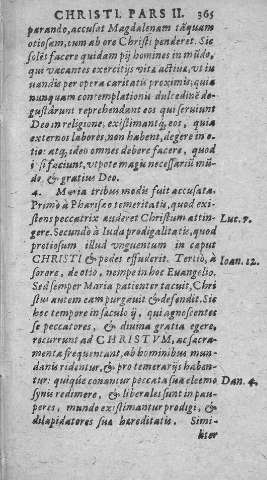 CHRISTI. PARS II. 365
parando, accusat Magdalenam tãquam
otiosam, cum ab ore Christi penderet. Sic
solẽt facere quidam pij homines in mũdo,
qui vacantes exercitijs vitæ actiuæ, vt iu
uandis per opera caritatis proximis; quia
nunquam contemplationis dulcedinẽ de-
gustãrunt reprehendunt eos qui seruiunt
Deo in religione, existimantq, eos, quia
externos labores, non habent, degere in o-
tio: atq, ideo omnes debere facere, quod
i si faciunt, vt pote magis necessariũ mũ-
do, & gratius Deo.
4. Maria tribus modis fuit accusata.
Primò à Pharisæo temeritatis, quod exi-
stens peccatrix auderet Christum attin- Luc. 7.
gere. Secundò à Iuda prodigalitatis, quod
pretiosum illud vnguentum in caput
CHRISTI & pedes effuderit. Tertiò, à Ioan. 12.
sorore, de otio, nempe in hoc Euangelio.
Sed semper Maria patienter tacuit, Chri
stus autem eam purgauit & defendit. Sic
hoc tempore in sæculo ij, qui agnoscentes
se peccatores, & diuina gratia egere,
recurrunt ad CHRISTVM, ac sacra-
menta frequentant, ab hominibus mun-
danis ridentur, & pro temerarijs haben-
tur: quique conantur peccata sua eleemo Dan. 4.
synis redimere, & liberales sunt in pau-
peres, mundo existimantur prodigi, &
dilapidatores suæ hæreditatis. Simi-
liter